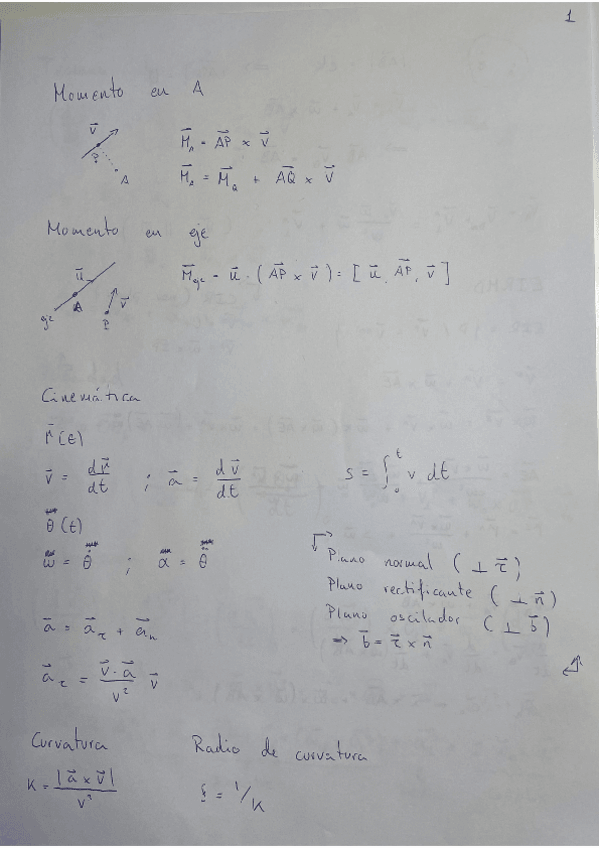 1
Momento en A
v⃗
P
A
M⃗_A = AP⃗ × v⃗
M⃗_A = M⃗_Q + AQ⃗ × v⃗
Momento en eje
u⃗
A
v⃗
P
eje
M⃗_eje = u⃗ · (AP⃗ × v⃗) = [u⃗, AP⃗, v⃗]
Cinemática
r⃗(t)
v⃗ = dr⃗/dt ; a⃗ = dv⃗/dt
s = ∫₀ᵗ v dt
θ(t)
ω = θ̇ ; α = θ̈
Plano normal (⊥ τ⃗)
Plano rectificante (⊥ n⃗)
Plano oscilador (⊥ b⃗)
⇒ b⃗ = τ⃗ × n⃗
a⃗ = a⃗_τ + a⃗_n
a⃗_τ = (v⃗ · a⃗)/v² v⃗
Curvatura
Radio de curvatura
K = |a⃗ × v⃗|/v³
ξ = 1/K